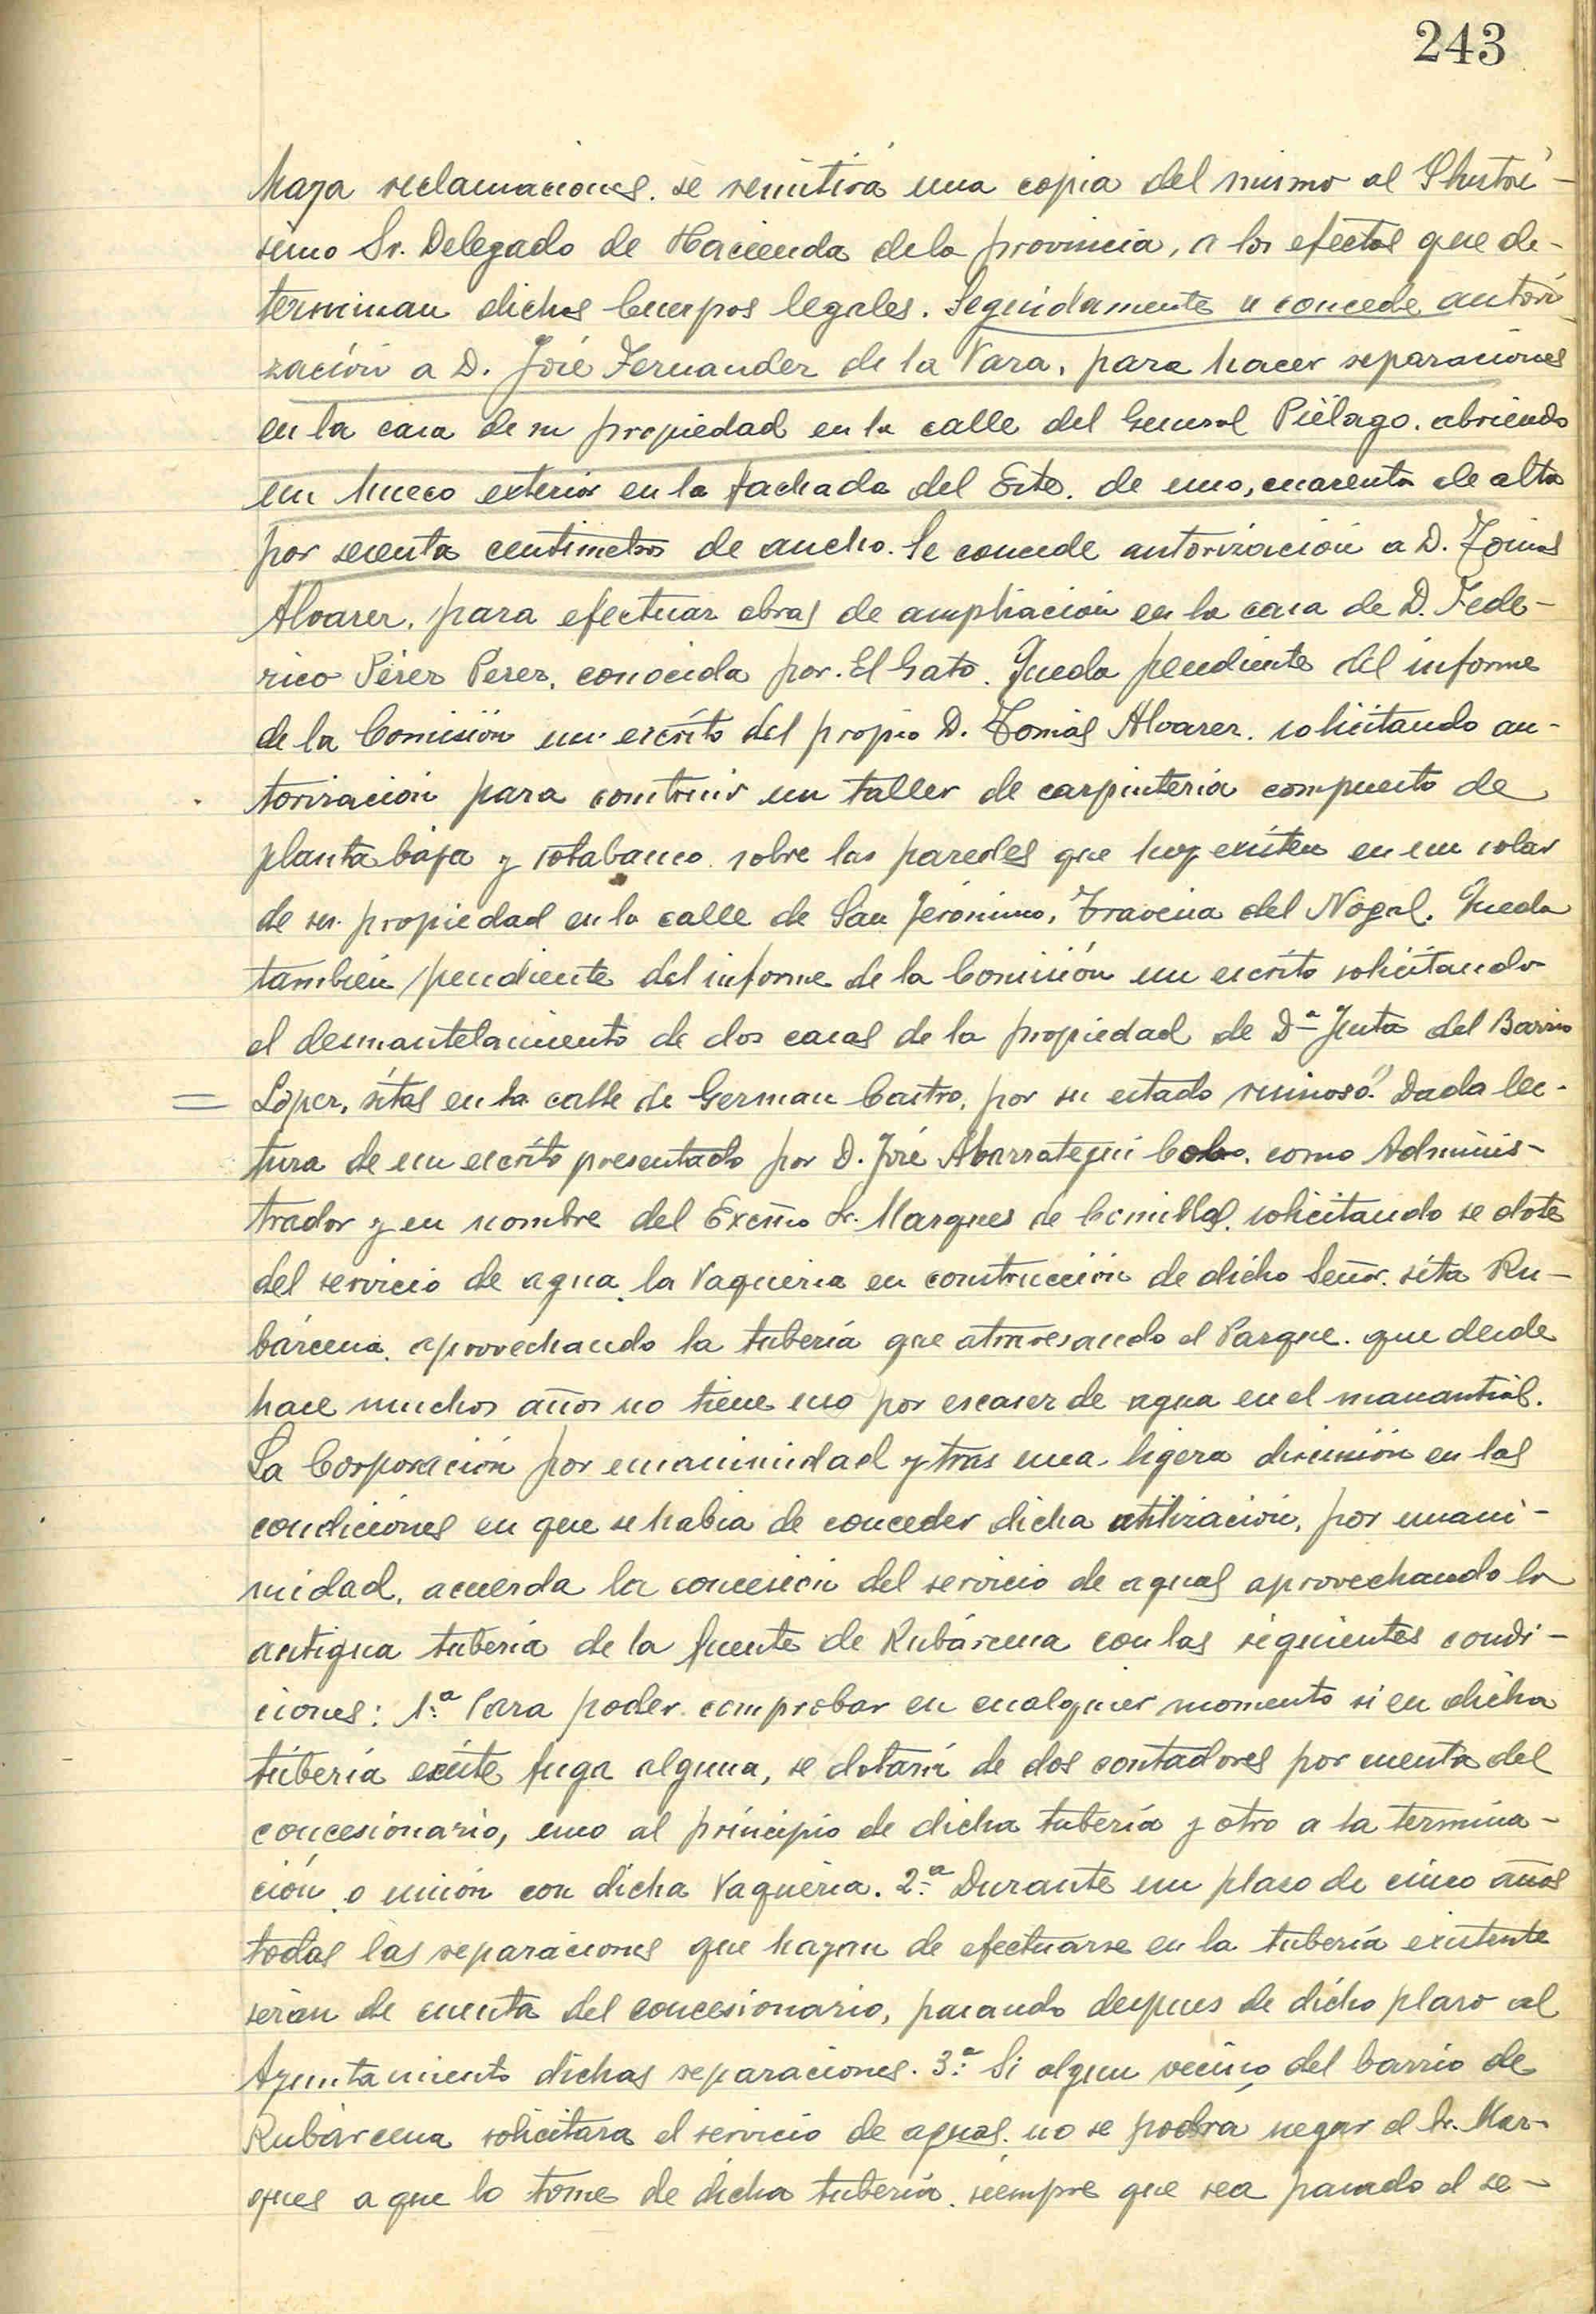 243
haya reclamaciones. se remitirá una copia del mismo al Ilustrí-
simo Sr. Delegado de Hacienda de la provincia, a los efectos que de-
terminan dichos Cuerpos legales. Seguidamente se concede autori-
zación a D. José Fernandez de la Vara, para hacer reparaciones
en la casa de su propiedad en la calle del General Piélago. abriendo
un hueco exterior en la fachada del Este. de uno, cuarenta de alto
por secenta centimetros de ancho. Se concede autorización a D. Tomas
Alvarez, para efectuar obras de ampliación en la casa de D. Fede-
rico Pérez Perez, conocida por. El Gato. Queda pendiente del informe
de la Comisión un escrito del propio D. Tomás Alvarez. solicitando au-
torización para construir un taller de carpinteria compuesto de
planta baja y sotabanco sobre las paredes que hoy existen en un solar
de su propiedad en la calle de San Jerónimo, Travesia del Nogal. Queda
también pendiente del informe de la Comisión un escrito solicitando
el desmantelamiento de dos casas de la propiedad de Dª Justa del Barrio
= López, sitas en la calle de German Castro, por su estado ruinoso." Dada lec-
tura de un escrito presentado por D. José Abarrategui Cobo. como Adminis-
trador y en nombre del Excmo Sr. Marques de Comillas. solicitando se dote
del servicio de agua la Vaqueria en construcción de dicho Señor. sita Ru-
bárcena. aprovechando la tubería que atravesando el Parque. que desde
hace muchos años no tiene uso por escasez de agua en el manantial.
La Corporación por unanimidad y tras una ligera discusión en las
condiciones en que se habia de conceder dicha utilización, por unani-
midad, acuerda la concesión del servicio de aguas aprovechando la
antigua tubería de la fuente de Rubárcena con las siguientes condi-
ciones: 1.ª Para poder comprobar en cualquier momento si en dicha
tubería existe fuga alguna, se dotará de dos contadores por cuenta del
concesionario, uno al principio de dicha tubería y otro a la termina-
ción o unión con dicha Vaquéria. 2.ª Durante un plazo de cinco años
todas las reparaciones que hayan de efectuarse en la tubería existente
serán de cuenta del concesionario, pasando despues de dicho plazo al
Ayuntamiento dichas reparaciones. 3.ª Si algun vecino del barrio de
Rubárcena solicitara el servicio de aguas. no se podra negar el Sr. Mar-
ques a que lo tome de dicha tubería. siempre que sea pasado el se-